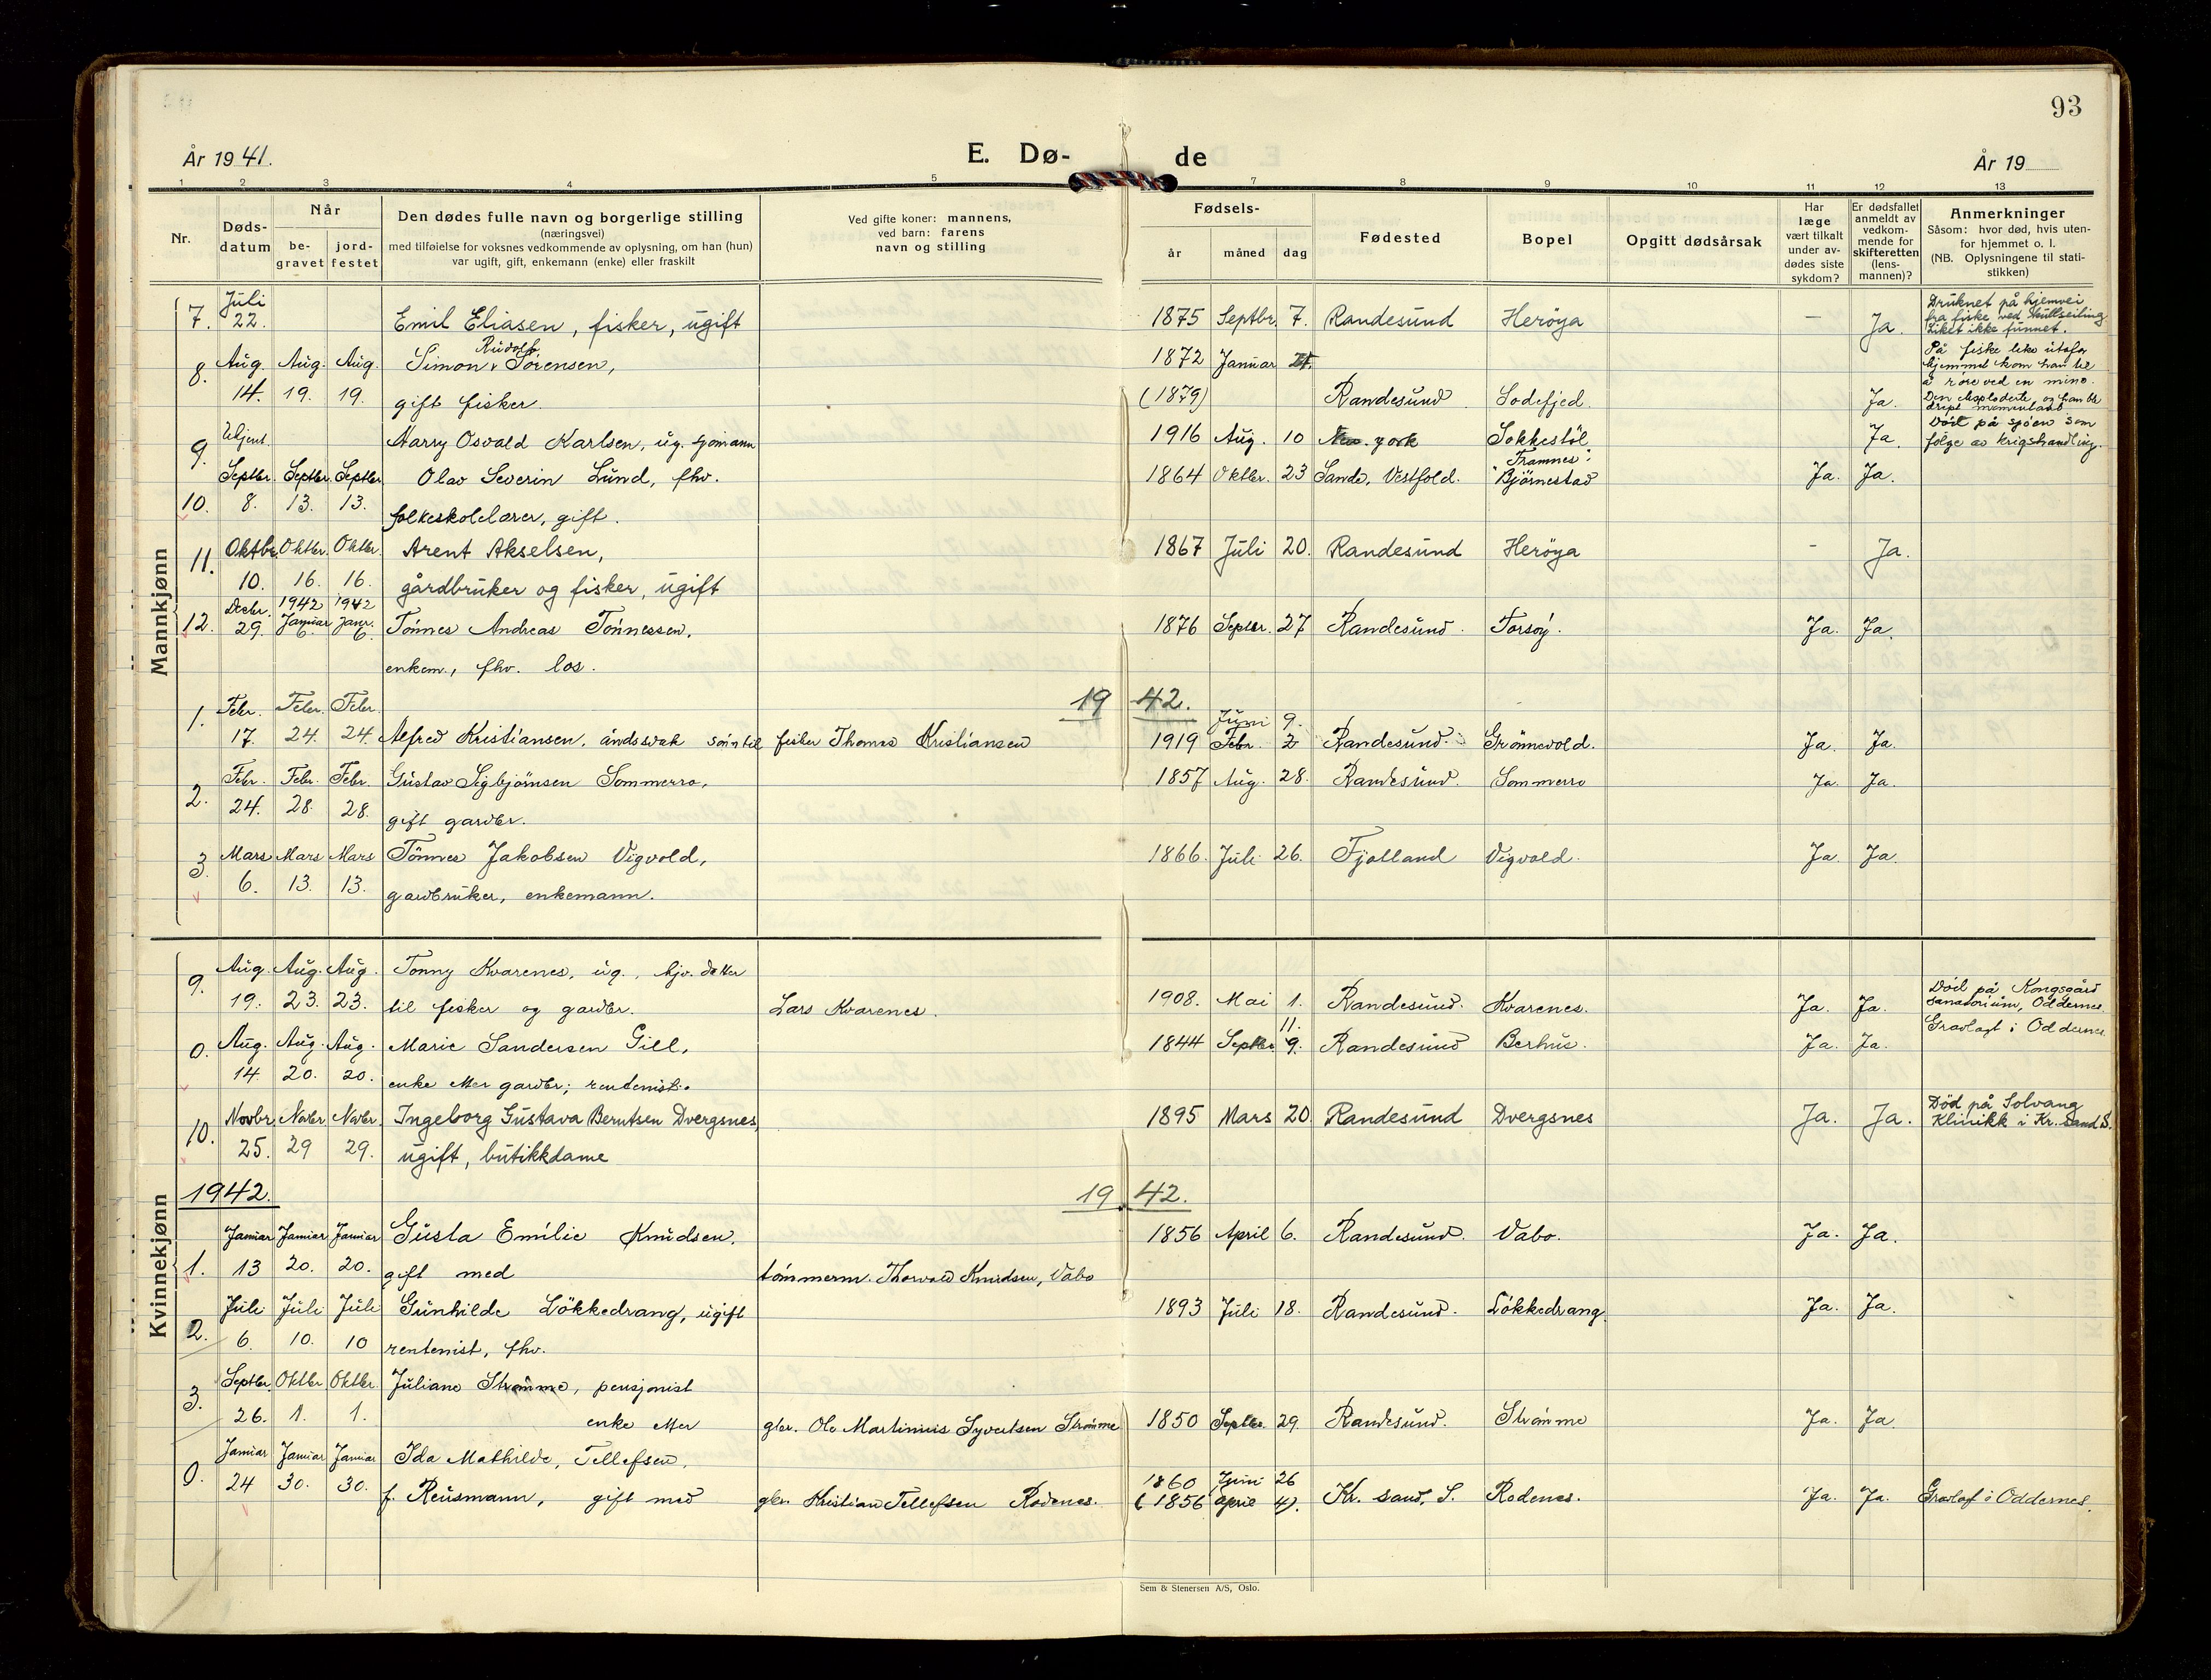 93
År 1941.
E. Dø-
de
År 19
1 2 3 4 5 7 8 9 10 11 12 13
Nr.
Døds-
datum
Når
be-
gravet
jord-
festet
Den dødes fulle navn og borgerlige stilling
(næringsvei)
med tilføielse for voksnes vedkommende av oplysning, om han (hun)
var ugift, gift, enkemann (enke) eller fraskilt
Ved gifte koner: mannens,
ved barn: farens
navn og stilling
Fødsels-
år måned dag
Fødested
Bopel
Opgitt dødsårsak
Har
læge
vært tilkalt
under av-
dødes siste
sykdom?
Er dødsfallet
anmeldt av
vedkom-
mende for
skifteretten
(lens-
mannen)?
Anmerkninger
Såsom: hvor død, hvis uten-
for hjemmet o. l.
(NB. Oplysningene til stati-
stikken)
Mannkjønn
Juli
7. 22. Emil Eliasen, fisker, ugift 1875 Septbr. 7. Randesund Herøya — Ja.
Druknet på hjemvei
fra fiske ved kullseiling.
Liket ikke funnet.
Rudolf
8. Aug. Aug. Aug. Simon Sørensen, 1872 Januar
14. 19. 19. gift fisker. (1879) Randesund Sodefjed. Ja.
På fiske like utafor
hjemmet kom han til
å røre ved en mine.
Den eksploderte, og han ble
drept momentant.
9. Ukjent. Harry Osvald Karlsen, ug. sjømann 1916 Aug. 10 New-york Sokkestøl Ja.
Död på sjöen som
fölge av krigshandling.
"Framnes".
Septbr. Septbr. Septbr. Olav Severin Lund, fhv. 1864 Oktbr. 23 Sande, Vestfold. Bjørnestad Ja. Ja.
10. 8. 13. 13. folkeskolelærer, gift.
11. Oktbr. Oktbr. Oktbr. Arent Akselsen, 1867 Juli 20. Randesund Herøya - Ja.
10. 16. 16. gårdbruker og fisker, ugift
Decbr. 1942 1942
12. 29. Januar 6. Janr. 6. Tönnes Andreas Tönnessen, 1876 Septbr. 27 Randesund. Torsöy. Ja. Ja.
enkem., fhv. los.
1942.
1. Febr. Febr. Febr. Juni 9.
17. 24. 24. Alfred Kristiansen, åndssvak sön til fisker Thomas Kristiansen 1919 Febr. 2 Randesund. Grönnevold. Ja. Ja.
2. Febr. Febr. Febr. Gustav Sigbjörnsen Sommerro, 1857 Aug. 28. Randesund. Sommerro Ja. Ja.
24. 28. 28. gift gardbr.
3. Mars Mars Mars Tönnes Jakobsen Vigvold, 1866. Juli 26. Fjolland Vigvold. Ja. Ja.
6. 13. 13. gardbruker, enkemann.
Kvinnekjønn
9. Aug. Aug. Aug. Tonny Kvarenes, ug., hjv. datter
19. 23. 23. til fisker og gardbr. Lars Kvarenes. 1908. Mai 1. Randesund. Kvarenes. Ja. Ja.
Död på Kongsgård
sanatorium, Oddernes.
11.
0. Aug. Aug. Aug. Marie Sandersen Gill, 1844 Septbr. 9. Randesund Berhus. Ja. Ja. Gravlagt i Oddernes
14. 20. 20. enke etter gardbr; rentenist.
Novbr. Novbr. Novbr. Ingeborg Gustava Berntsen Dvergsnes, 1895 Mars 20 Randesund Dvergsnes Ja. Ja.
Död på Solvang
Klinikk i Kr. Sand S.
10. 25. 29 29. ugift, butikkdame
1942. 1942.
Januar Januar Januar Gusta Emilie Knudsen. 1856 April 6. Randesund. Vabo. Ja. Ja.
1. 13 20. 20. gift med tömmerm. Thorvald Knudsen, Vabo
Juli Juli Juli Gunhilde Lökkedrang, ugift 1893 Juli 18. Randesund. Lökkedrang. Ja. Ja.
2. 6. 10. 10 rentenist, fhv.
3. Septbr. Oktbr Oktbr. Juliane Strømme, pensjonist
26. 1. 1. enke etter gbr. Ole Martinius Syvertsen Strømme 1850 Septbr. 29. Randesund. Strömme Ja. Ja
Januar Januar Januar Ida Mathilde, Tellefsen, 1860 Juni 26
0. 24 30. 30. f. Reusmann, gift med gbr. Kristian Tellefsen Rodenes. (1856 April 4). Kr. sand, S. Rodenes. Ja. Ja. Gravlagt i Oddernes.
Sem & Stenersen A/S, Oslo.